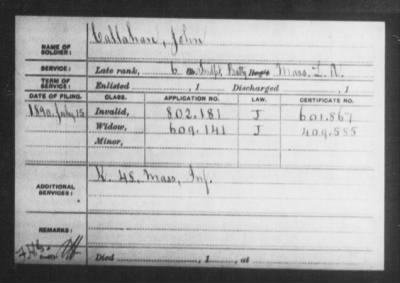 Callahan, John
NAME OF SOLDIER:
SERVICE: Late rank, 6 Indpt Batty Mass. L. A.
TERM OF SERVICE: Enlisted , 1 Discharged , 1
DATE OF FILING. CLASS. APPLICATION NO. LAW. CERTIFICATE NO.
1890, July 15 Invalid, 802.181 J 601.867
Widow, 609.141 J 409.585
Minor,
ADDITIONAL SERVICES: K. 48, Mass, Inf.
REMARKS:
Died , 1 , at